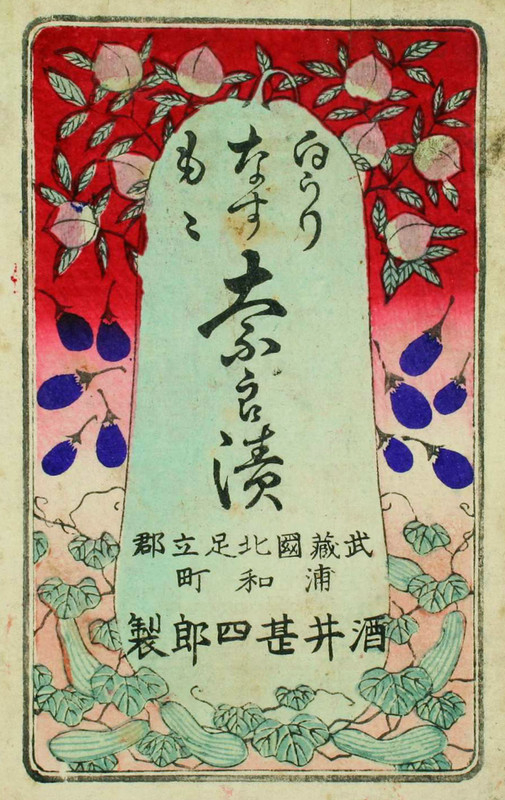 白うり
なす
もゝ
奈良漬
武藏國北足立郡
浦和町
酒井甚四郎製